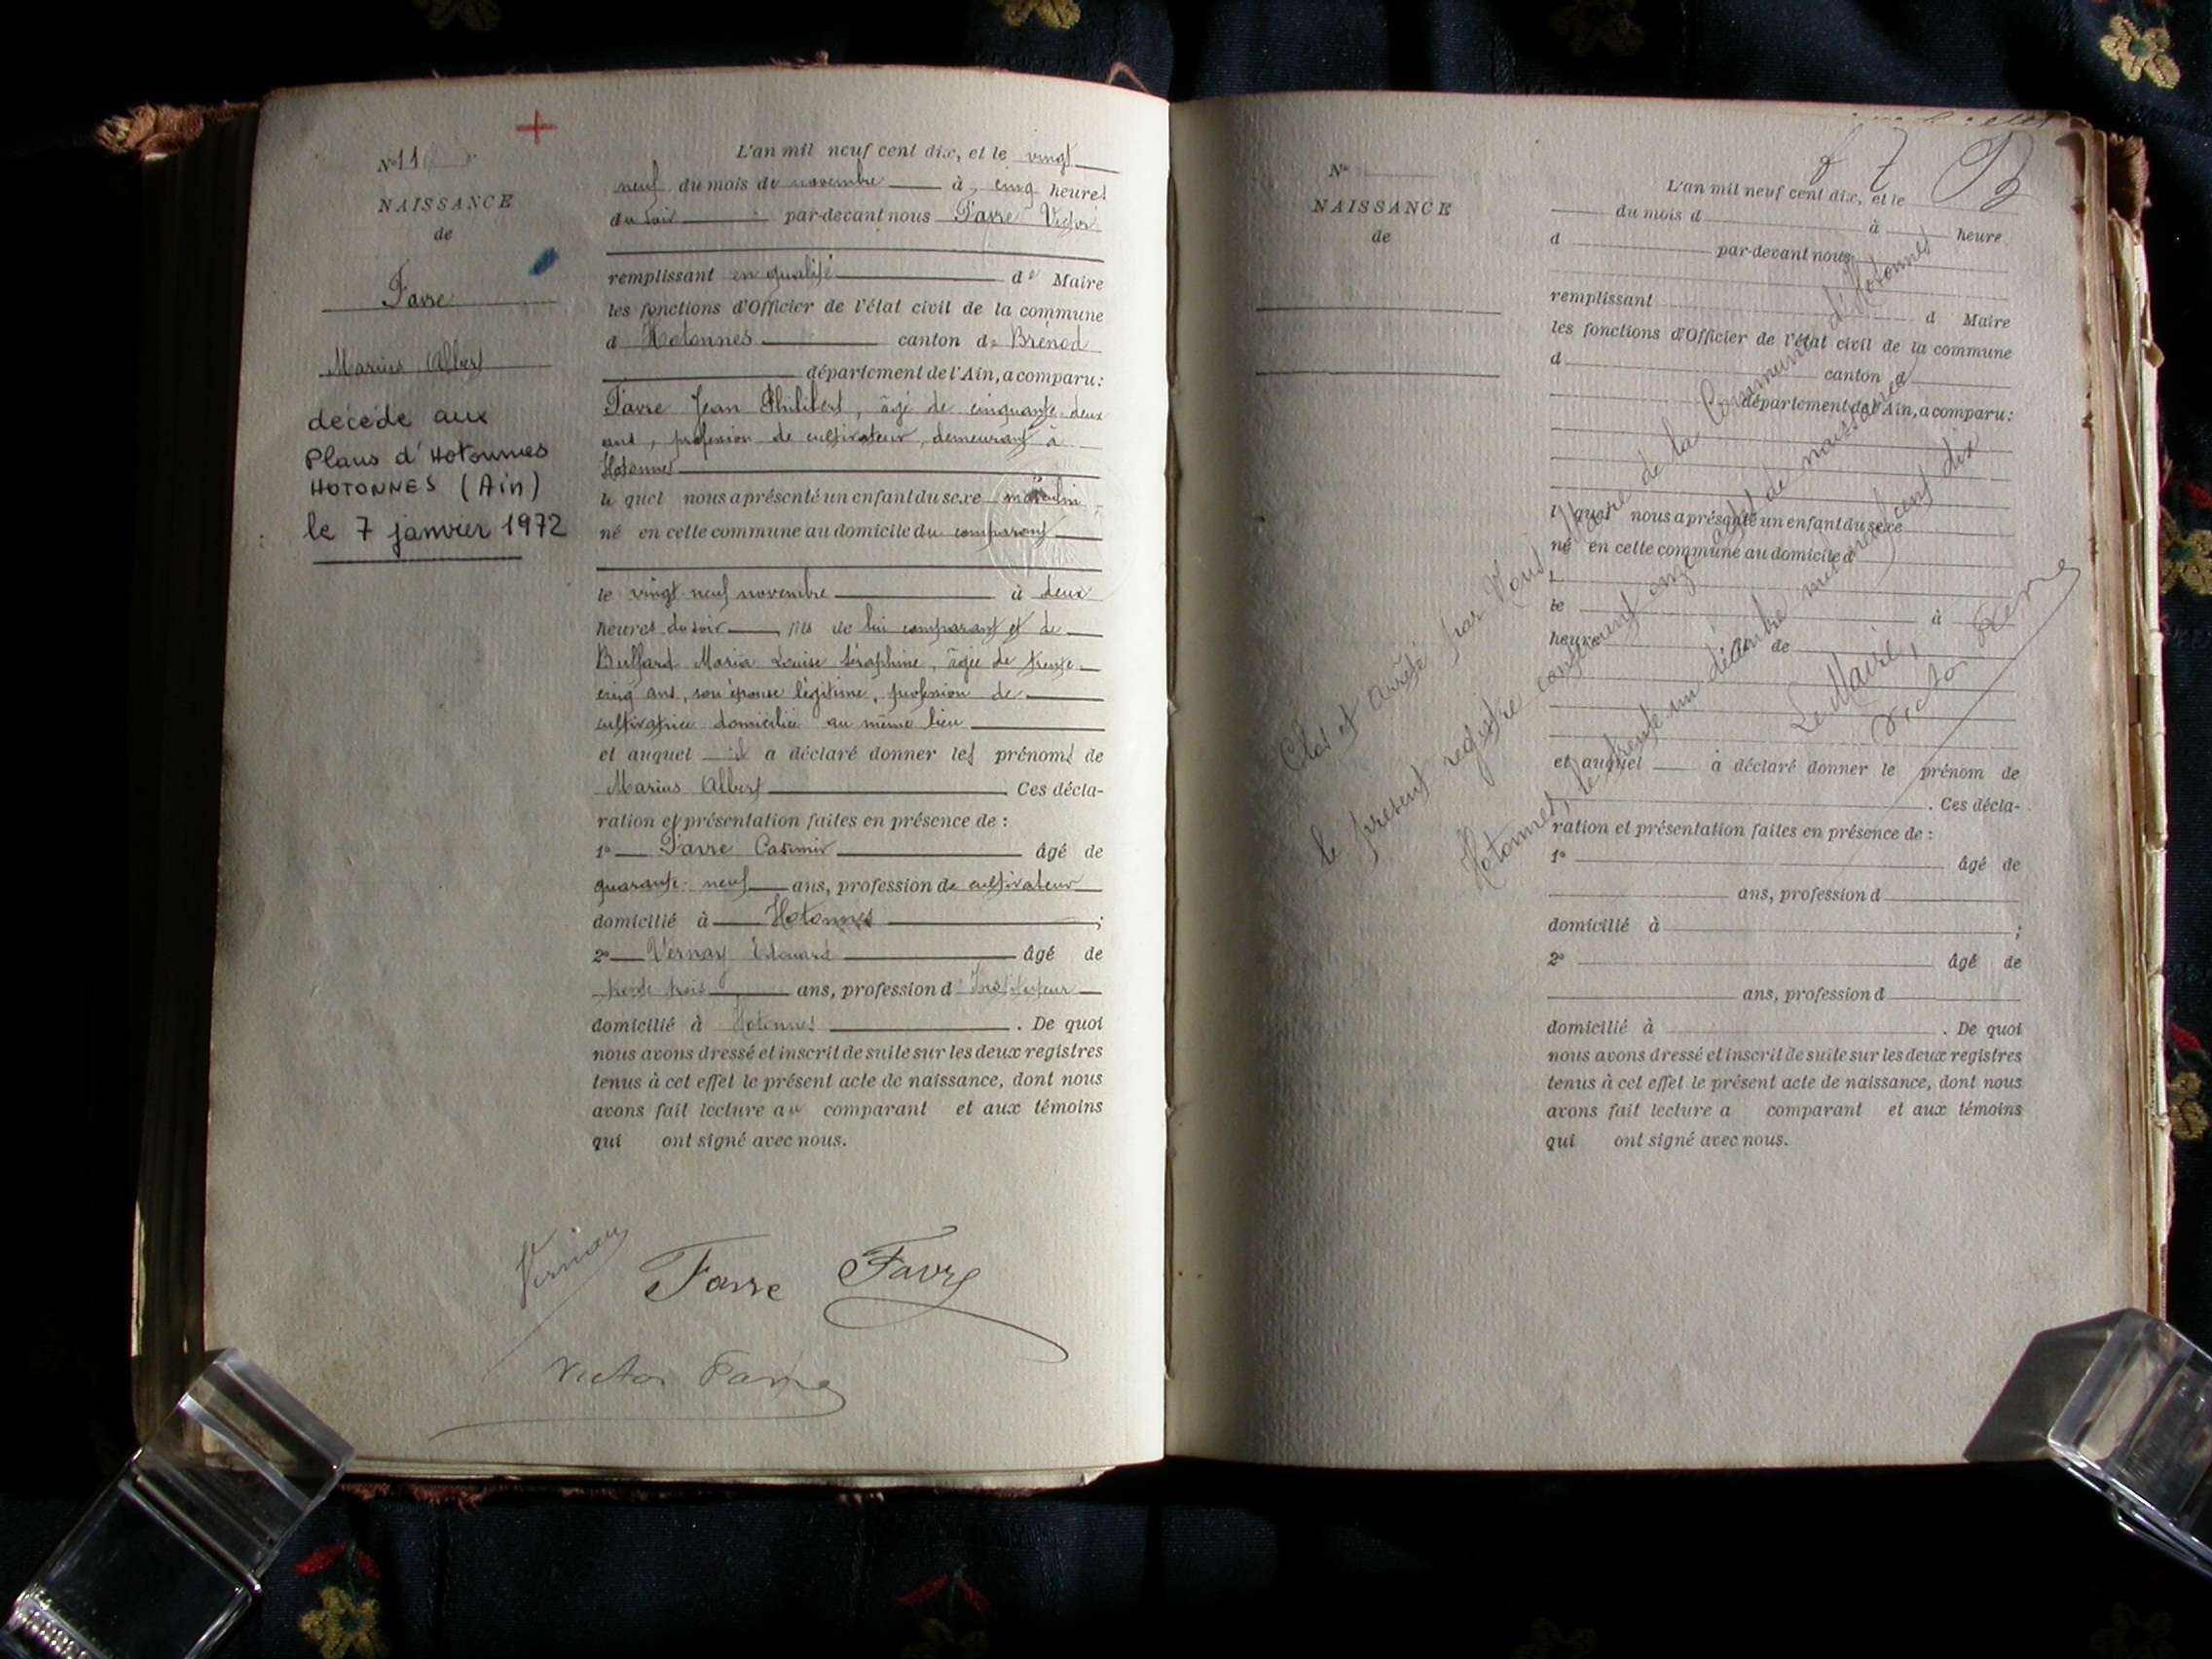 N° 11
NAISSANCE
de
Favre
Marius Albert
décédé aux
Plans d'Hotonnes
HOTONNES (Ain)
le 7 janvier 1972
L'an mil neuf cent dix, et le vingt
neuf du mois de novembre à cinq heures
du soir par-devant nous Favre Victor
remplissant en qualité de Maire
les fonctions d'Officier de l'état civil de la commune
d Hotonnes canton de Brénod
département de l'Ain, a comparu:
Favre Jean Philibert, âgé de cinquante deux
ans, profession de cultivateur, demeurant à
Hotonnes
le quel nous a présenté un enfant du sexe masculin
né en cette commune au domicile du comparant
le vingt neuf novembre à deux
heures du soir fils de lui comparant et de
Bulfard Maria Louise Séraphine, âgée de trente
cinq ans, son épouse légitime, profession de
cultivatrice domiciliée au même lieu
et auquel il a déclaré donner les prénoms de
Marius Albert. Ces décla-
ration et présentation faites en présence de :
1° Favre Casimir âgé de
quarante-neuf ans, profession de cultivateur
domicilié à Hotonnes ;
2° Vernay Edouard âgé de
trente trois ans, profession d'Instituteur
domicilié à Hotonnes. De quoi
nous avons dressé et inscrit de suite sur les deux registres
tenus à cet effet le présent acte de naissance, dont nous
avons fait lecture au comparant et aux témoins
qui ont signé avec nous.
Vernay Favre Favre
Victor Favre
N°
NAISSANCE
de
L'an mil neuf cent dix, et le
du mois d à heure
d par-devant nous
remplissant d Maire
les fonctions d'Officier de l'état civil de la commune
d canton d
département de l'Ain, a comparu:
l quel nous a présenté un enfant du sexe
né en cette commune au domicile d
le à
heure de
et auquel a déclaré donner le prénom de
. Ces décla-
ration et présentation faites en présence de :
1° âgé de
ans, profession d
domicilié à ;
2° âgé de
ans, profession d
domicilié à . De quoi
nous avons dressé et inscrit de suite sur les deux registres
tenus à cet effet le présent acte de naissance, dont nous
avons fait lecture a comparant et aux témoins
qui ont signé avec nous.
Clos et arrêté par Nous Maire de la Commune d'Hotonnes
le présent registre contenant onze actes de naissance
Hotonnes, le trente un décembre mil neuf cent dix
Le Maire,
Victor Favre